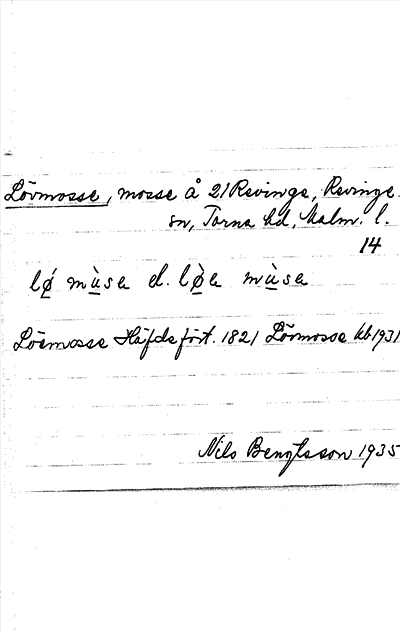 Lövmosse, mosse å 21 Revinge, Revinge
sn, Torna hd, Malm. l.
14
lǿ mùsa el. lø̀a mùsa
Löemosse Häfdsfört. 1821 Lövmosse kb 1931
Nils Bengtsson 1935